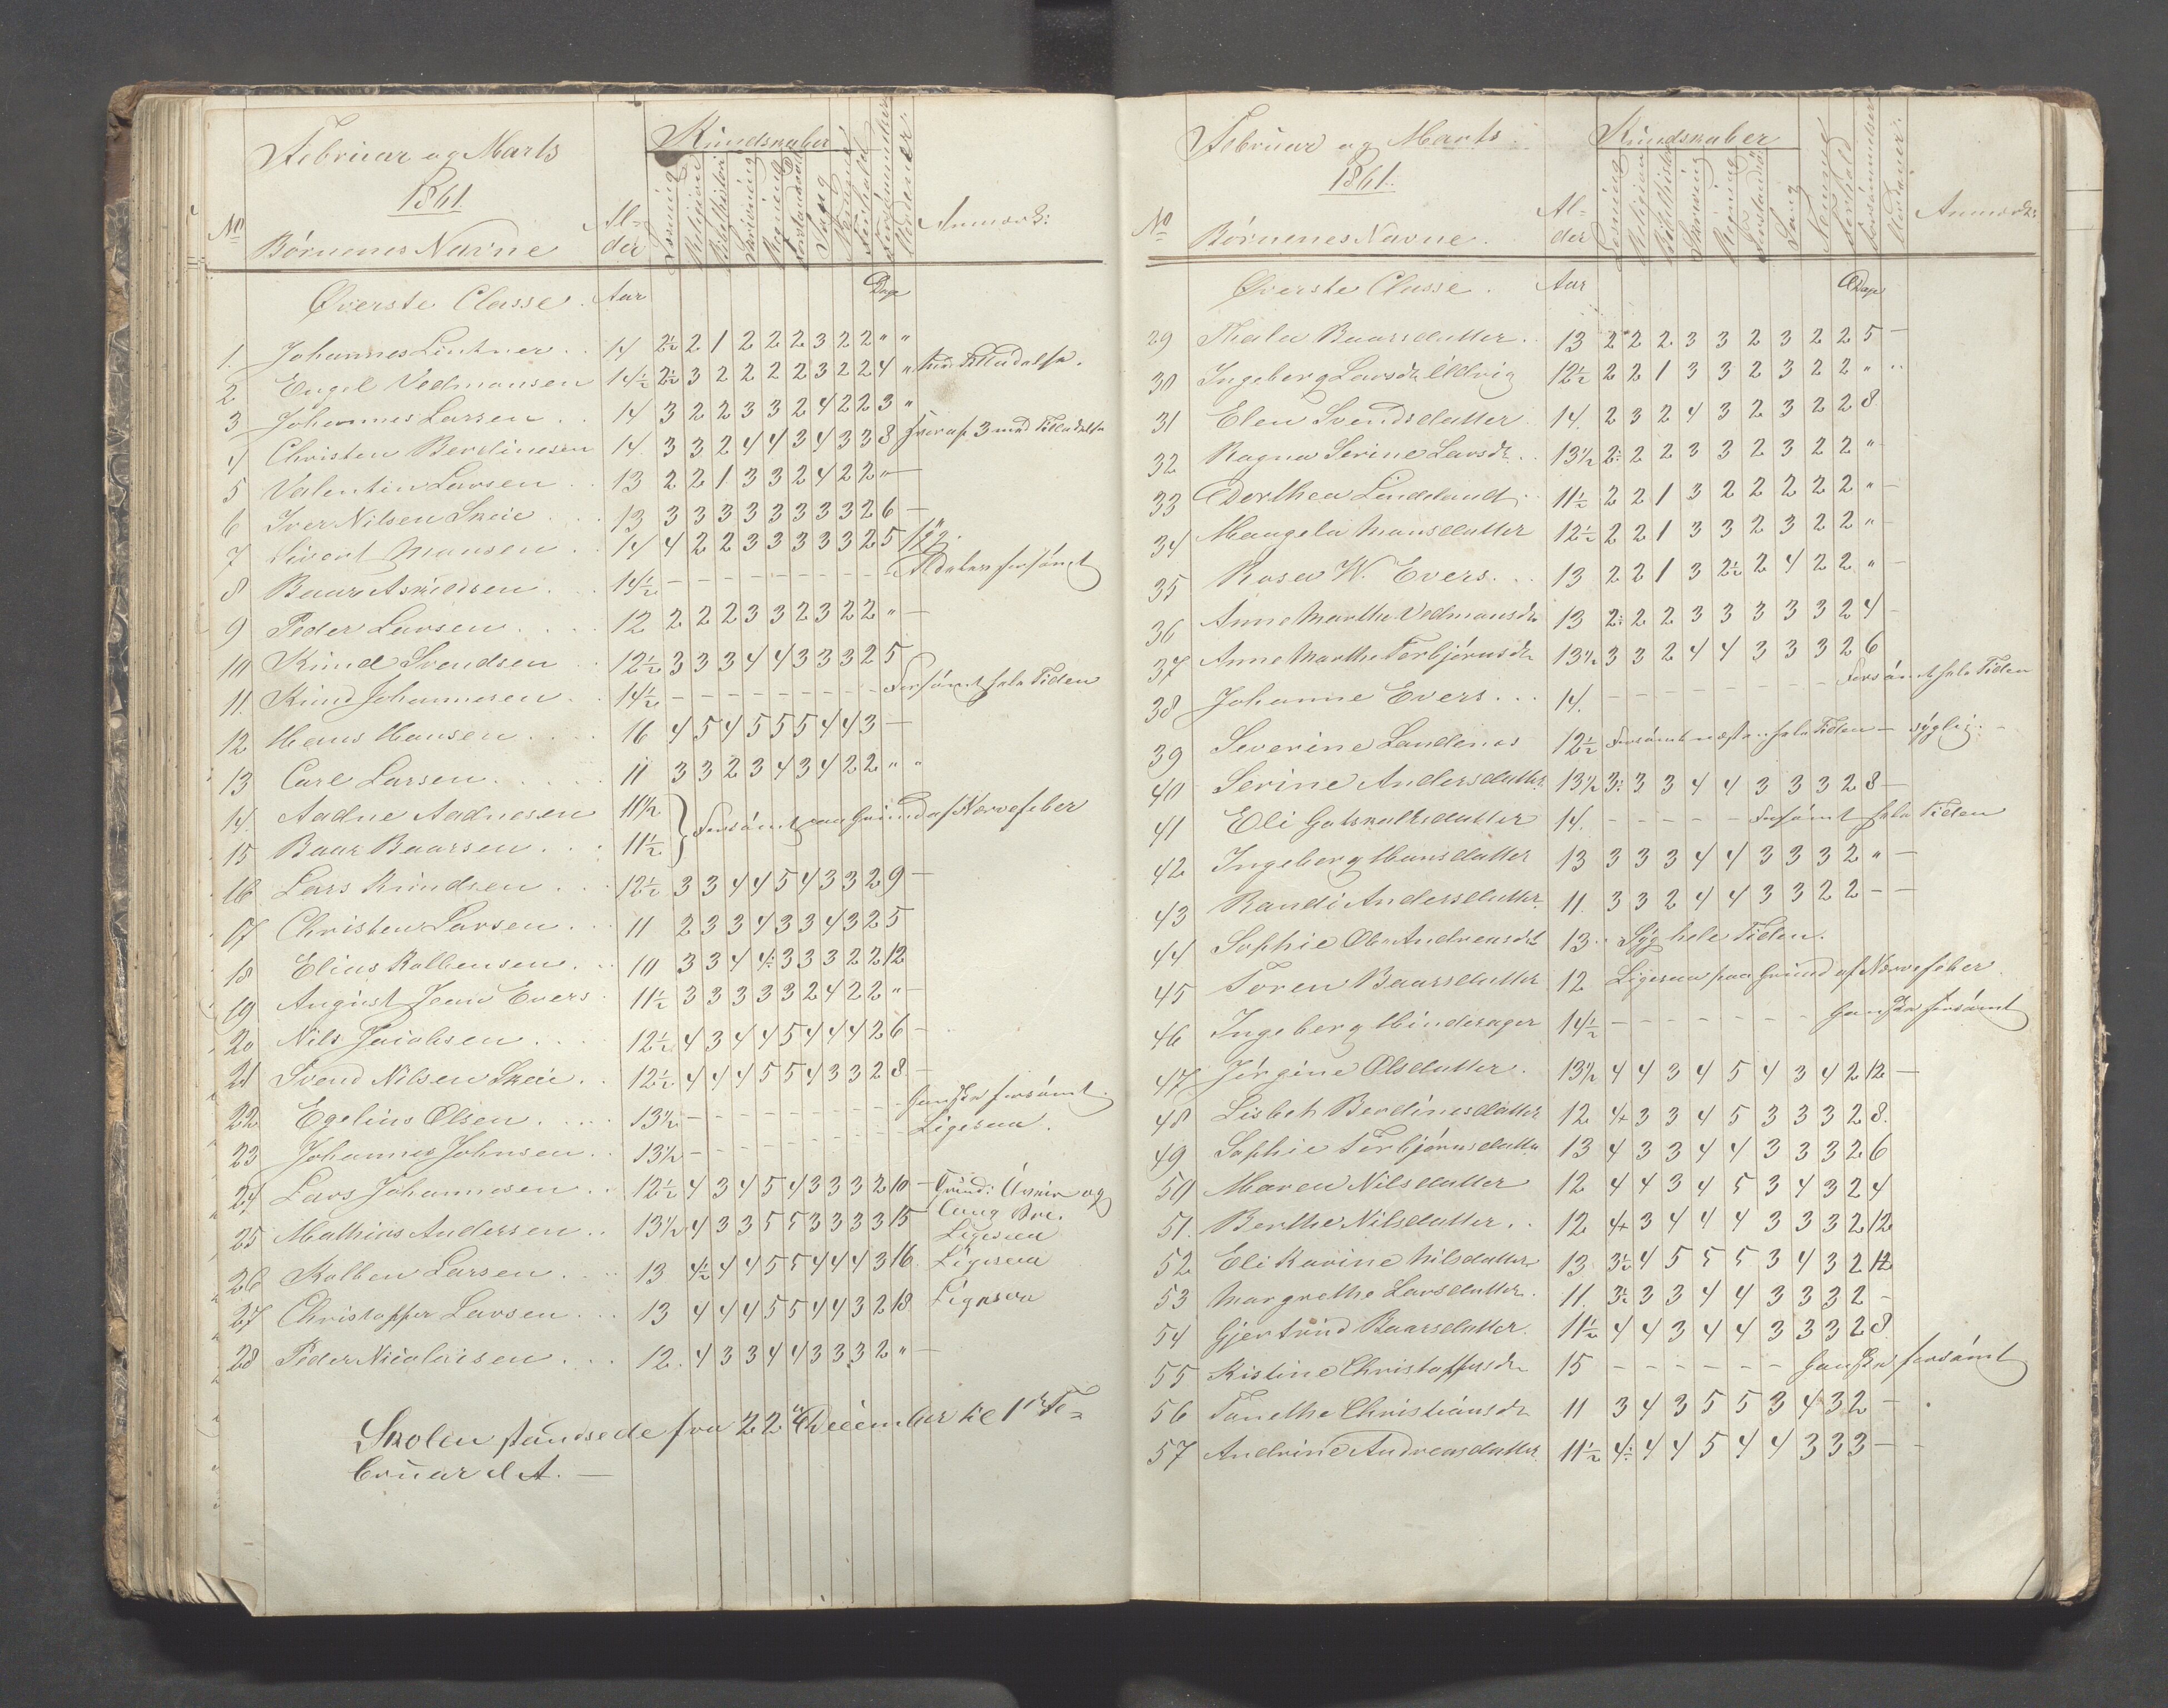 Februar og Marts
1861
Kundskaber
No
Børnenes Navne
Al-
der
Læsning
Religion
Bibelhistorie
Skrivning
Regning
Forstandsøv.
Sang
Næring
Forhold
Forsømmelser
Anmærk:
Øverste Classe. Aar Dage
1. Johannes Lintner . . 14 2½ 2 1 2 2 2 2 3 2 2 " "
2 Engel Vedmansen 14½ 2½ 3 2 2 2 2 3 2 2 4 " Tilladelse.
3 Johannes Larsen . . 14 3 2 2 3 3 2 4 2 2 3 "
4 Christen Berdinesen 14 3 3 2 4 4 3 4 3 3 8 hvoraf 3 med Tilladelse
5 Valentin Larsen . . 13 2 2 1 3 3 2 4 2 2 " —
6 Iver Nilsen Skeie . . . 13 3 3 3 3 3 3 3 3 2 6 —
7 Sivert Mansen . . 14 4 2 2 3 3 3 3 3 2 5 Syg.
8 Baar Askildsen . . . 14½ — — — — — — — — — Aldeles forsømt
9 Peder Larsen . . . . 12 2 2 2 3 3 2 3 2 2 " —
10 Knud Svendsen . . 12½ 3 3 3 4 4 3 3 3 2 5
11. Knud Johannesen . . 14½ — — — — — — — — Forsømt hele Tiden
12 Hans Hansen . . . . 16 4 5 4 5 5 5 4 4 3 —
13 Carl Larsen . . . . . 11 3 3 2 3 4 3 4 2 2 " "
14. Aadne Aadnesen 11½ } Forsømt paa Grund af Nervefeber
15 Baar Baarsen . . . 11½
16 Lars Knudsen . . . 12½ 3 3 4 4 5 4 3 3 2 9 —
17 Christen Larsen . . . 11 2 3 3 4 3 3 4 3 2 5
18 Elias Kolbensen . . . 10 3 3 4 4: 3 3 3 2 2 12
19 August Jean Evers . 11½ 3 3 3 3 3 2 4 2 2 " —
20 Nils Jacobsen . . . . 12½ 4 3 4 4 5 4 4 4 2 6 —
21 Svend Nilsen Skeie . . 12½ 4 4 4 5 5 4 3 3 2 8 —
22 Egelius Olsen . . . . . 13½ — — — — — — — — Ganske forsømt.
23 Johannes Johnsen . . 13½ — — — — — — — — Ligesaa.
24 Lars Johannesen . . . 12½ 4 3 4 5 4 3 3 3 2 10 — Grund: Uveir og
25 Mathias Andersen . . 13½ 4 3 3 5 5 3 3 3 3 15 lang Vei.
Ligesaa
26 Kolben Larsen . . . . 13 4½ 4 4 5 5 4 4 4 3 16 Ligesaa
27 Christopher Larsen . . . 13 4 4 4 5 5 4 4 3 2 18 Ligesaa
28 Peder Nicolaisen . . . 12. 4 3 3 4 4 3 3 3 2 " —
Skolen standsede fra 22de December til 1ste Fe=
bruar d. A. —
Februar og Marts.
1861.
Kundskaber
No
Børnenes Navne.
Al-
der
Læsning
Religion
Bibelhistorie
Skrivning
Regning
Forstandsøv.
Sang
Forhold
Forsømmelser
Anmærk:
Øverste Classe. Aar Dage
29 Thala Baarsdatter . . 13 2 2 2 3 3 2 3 2 2 5 —
30 Ingeborg Larsdr. 12½ 2 2 1 3 3 2 3 2 2 " ..
31 Elen Svendsdatter . 14. 2 3 2 4 3 2 3 2 2 8
32 Ragna Serine Larsdr. . 13½ 2: 2 2 3 3 2 3 2 2 " -
33 Dorthea Lindeland . . 11½ 2 2 1 3 2 2 2 2 2 " —
34 Mangela Mansdatter 12½ 2 2 1 3 3 2 3 2 2 " -
35 Rosa W. Evers. . . 13 2 2 1 3 2½ 2 4 2 2 " —
36 Anne Marthe Vedmansdr 13 2: 2 2 3 3 3 3 3 2 4 —
37 Anne Marthe Torbjørnsdr 13½ 3 3 2 4 4 3 3 3 2 6
38 Johanne Evers . . . 14. — — — — — — — Forsømt hele Tiden
39 Severine Landenes 12½ Forsømt næsten hele Tiden — syglig. —
40 Serine Andersdatter. 13½ 3: 3 3 4 4 3 3 3 2 8 —
41 Eli Gotskalksdatter 14. — — — — — Forsømt hele Tiden
42 Ingeborg Hansdatter 13 3 3 3 4 4 3 3 3 2 " —
43 Randi Andersdatter. 11. 3 3 2 4 4 3 3 2 2 — —
44 Sophie Ols Andreasdt 13 . . Syg hele Tiden.
45 Toren Baarsdatter 12 Ligesaa paa Grund af Nervefeber
46 Ingeborg Hinderager 14½ — — — — — — — Ganske forsømt
47 Jørgine Olsdatter . 13½ 4 4 3 4 5 4 3 4 2 12 —
48 Lisbeth Berdinesdatter 12 4+ 3 3 4 5 3 3 3 2 8.
49 Sophie Torbjørnsdatter 13 4 3 3 4 4 3 3 3 2 6
50 Maren Nilsdatter 12 4 4 3 4 5 3 4 3 2 4
51. Berthe Nilsdatter . . 12 4+ 3 4 4 4 3 3 3 2 12
52 Eli Karine Nilsdatter 13 3½ 4 5 5 5 3 4 3 2 12
53 Margrethe Larsdatter. 11. 3½ 3 3 4 4 3 3 3 2 —
54 Gjertrud Baarsdatter. 11½ 4 4 3 4 4 3 3 3 2 8
55 Kistine Christophersdr 15 — — — — — — Ganske forsømt
56 Tanethe Christiansdr 11 3 4 3 5 5 3 4 3 2 — .
57 Andrine Andreasdatter. 11½ 4: 4 4 5 4 4 3 3 3 — —